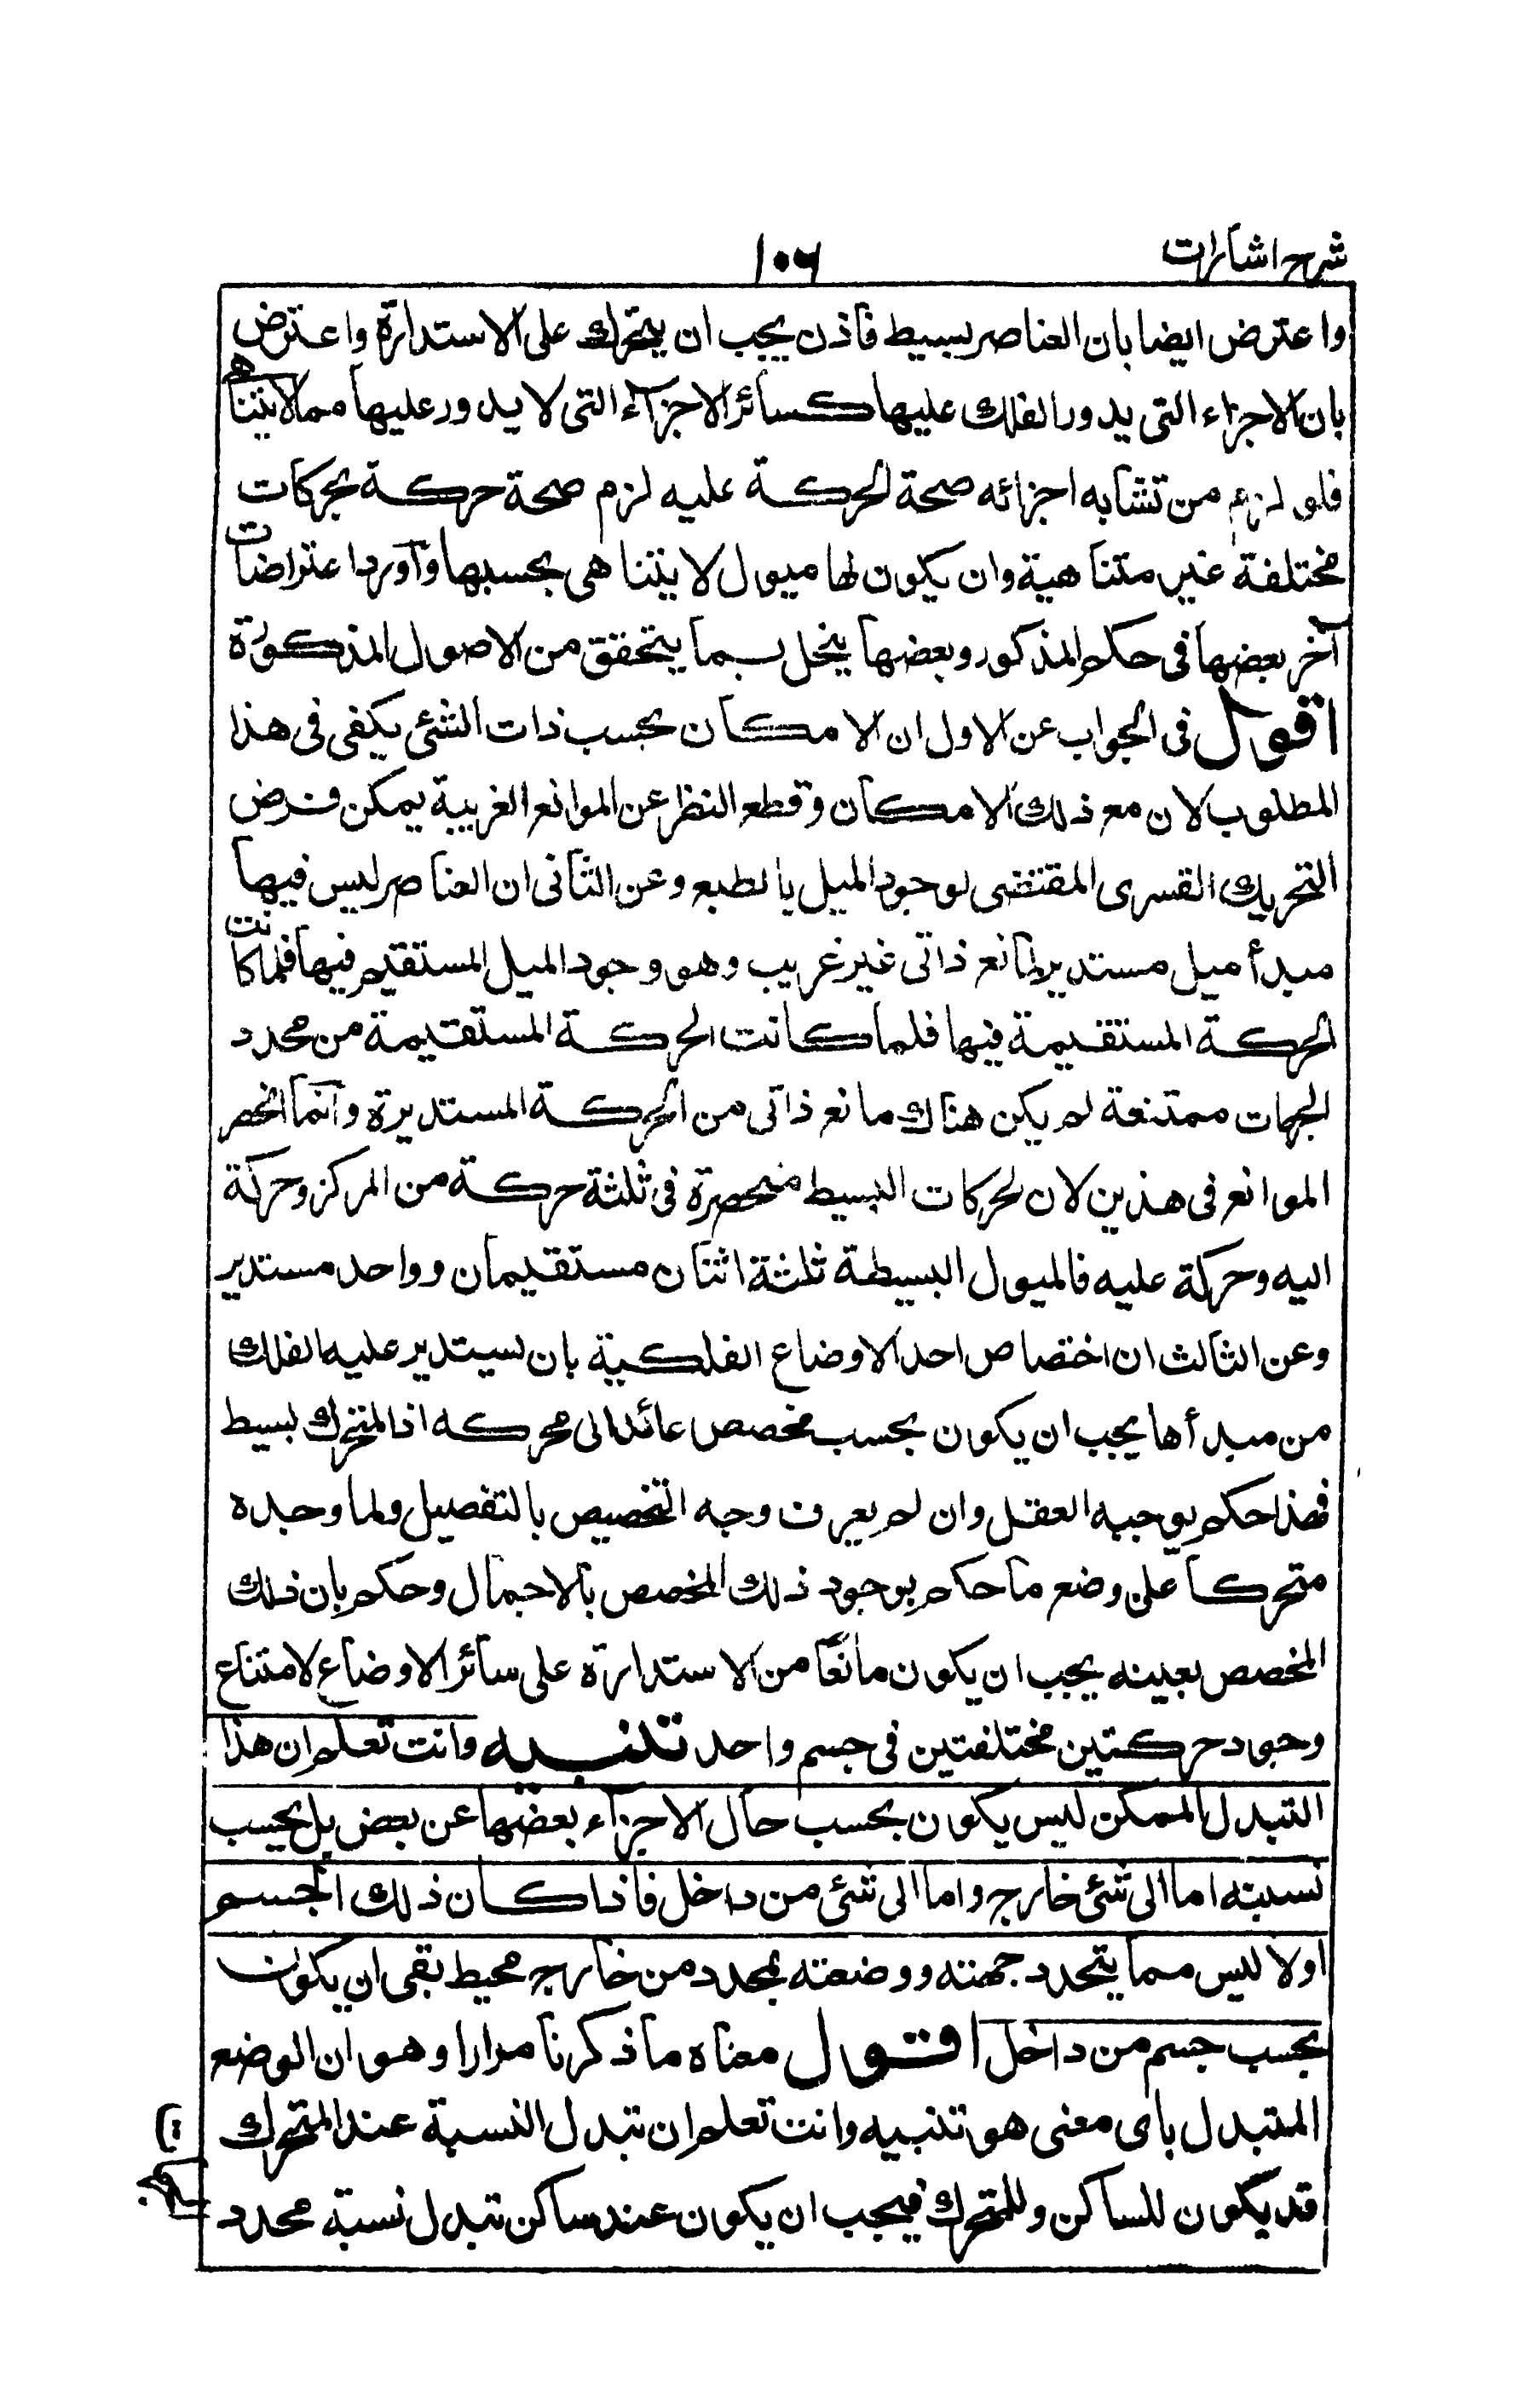 شرح اشارات
١٠٦
واعترض ايضا بان العناصر بسيط فاذن يجب ان يتحرك على الاستدارة واعترض
بان الاجزاء التى يدور الفلك عليها كسائر الاجزاء التى لا يدور عليها مما لا يتناهى
فلو لزم من تشابه اجزائه صحة الحركة عليه لزم صحة حركة بحركات
مختلفة غير متناهية وان يكون لها ميول لا يتناهى بحسبها وأورد اعتراضات
آخر بعضها فى حكم المذكور وبعضها ينحل بما يتحقق من الاصول المذكورة
اقول فى الجواب عن الاول ان الامكان بحسب ذات الشئ يكفى فى هذا
المطلوب لان مع ذلك الامكان وقطع النظر عن الموانع الغريبة يمكن فرض
التحريك القسرى المقتضى لوجود الميل بالطبع وعن الثانى ان العناصر ليس فيها
مبدأ ميل مستدير لمانع ذاتى غير غريب وهو وجود الميل المستقيم فيها فلما كانت
الحركة المستقيمة فيها فلما كانت الحركة المستقيمة من محدد
الجهات ممتنعة لم يكن هناك مانع ذاتى من الحركة المستديرة وانما انحصر
الموانع فى هذين لان الحركات البسيط منحصرة فى ثلثة حركة من المركز وحركة
اليه وحركة عليه فالميول البسيطة ثلثة اثنان مستقيمان وواحد مستدير
وعن الثالث ان اختصاص احد الاوضاع الفلكية بان يستدير عليه الفلك
من مبدأها يجب ان يكون بحسب مخصص عائد الى محركه اذ المتحرك بسيط
فهذا حكم يوجبه العقل وان لم يعرف وجه التخصيص بالتفصيل ولما وجده
متحركا على وضع ما حكم بوجود ذلك المخصص بالاجمال وحكم بان ذلك
المخصص بعينه يجب ان يكون مانعا من الاستدارة على سائر الاوضاع لامتناع
وجود حركتين مختلفتين فى جسم واحد تنبيه وانت تعلم ان هذا
التبدل الممكن ليس يكون بحسب حال الاجزاء بعضها عن بعض بل بحسب
نسبته اما الى شئ خارج واما الى شئ من داخل فاذا كان ذلك الجسم
اولا ليس مما يتحدد جهته ووضعته بمحدد من خارج محيط بقى ان يكون
بحسب جسم من داخل اقول معناه ما ذكرنا مرارا وهو ان الوضع
المتبدل باى معنى هو تنبيه وانت تعلم ان تبدل النسبة عند المتحرك
قد يكون للساكن وللمتحرك فيجب ان يكون عند ساكن تبدل نسبة محدد